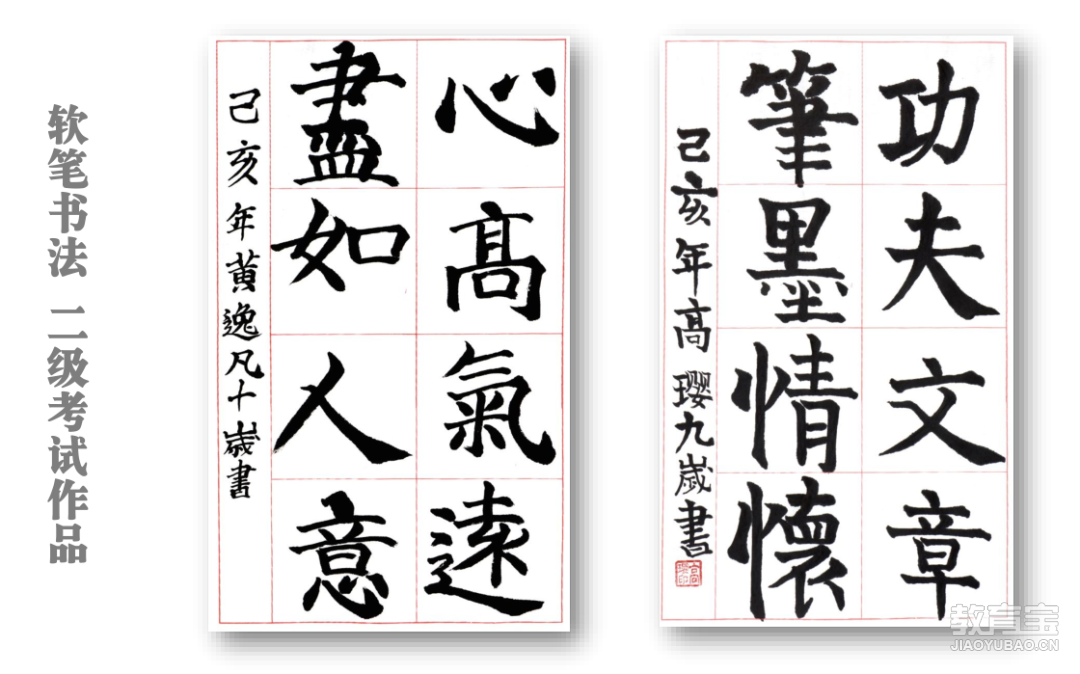 软笔书法 二级考试作品
心高氣遠
盡如人意
己亥年黄逸凡十歲書
功夫文章
筆墨情懷
己亥年高璎九歲書
教育宝
JIAOYUBAO.CN